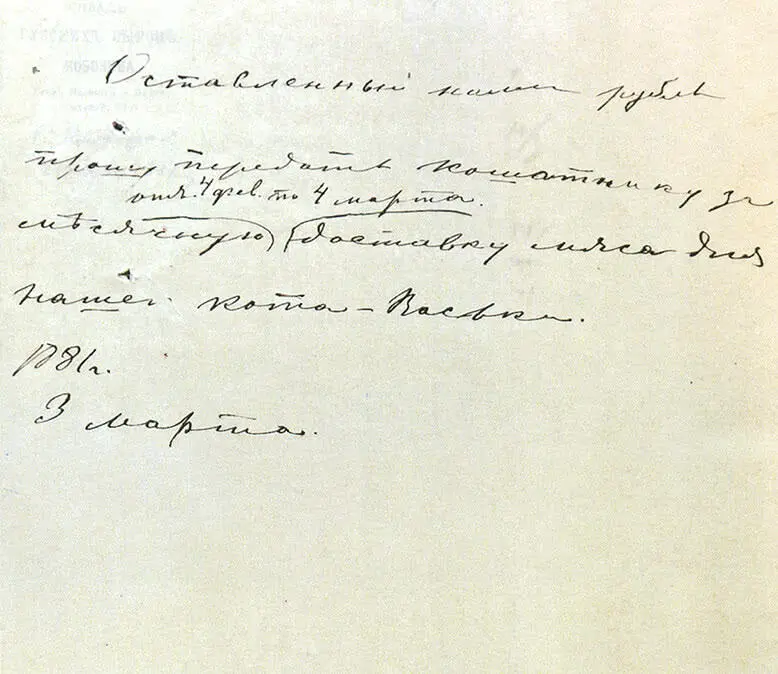 Оставленный нами рубль
прошу передать кошатнику за
отъ 4 фев. по 4 марта.
мѣсячную (доставку мяса для
нашего кота - Васьки.
1881 г.
3 марта.